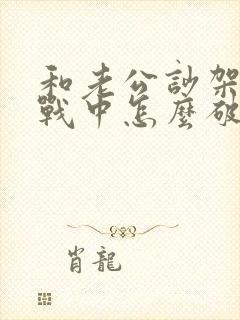 和老公訃架
戰中怎麼破
肖龍